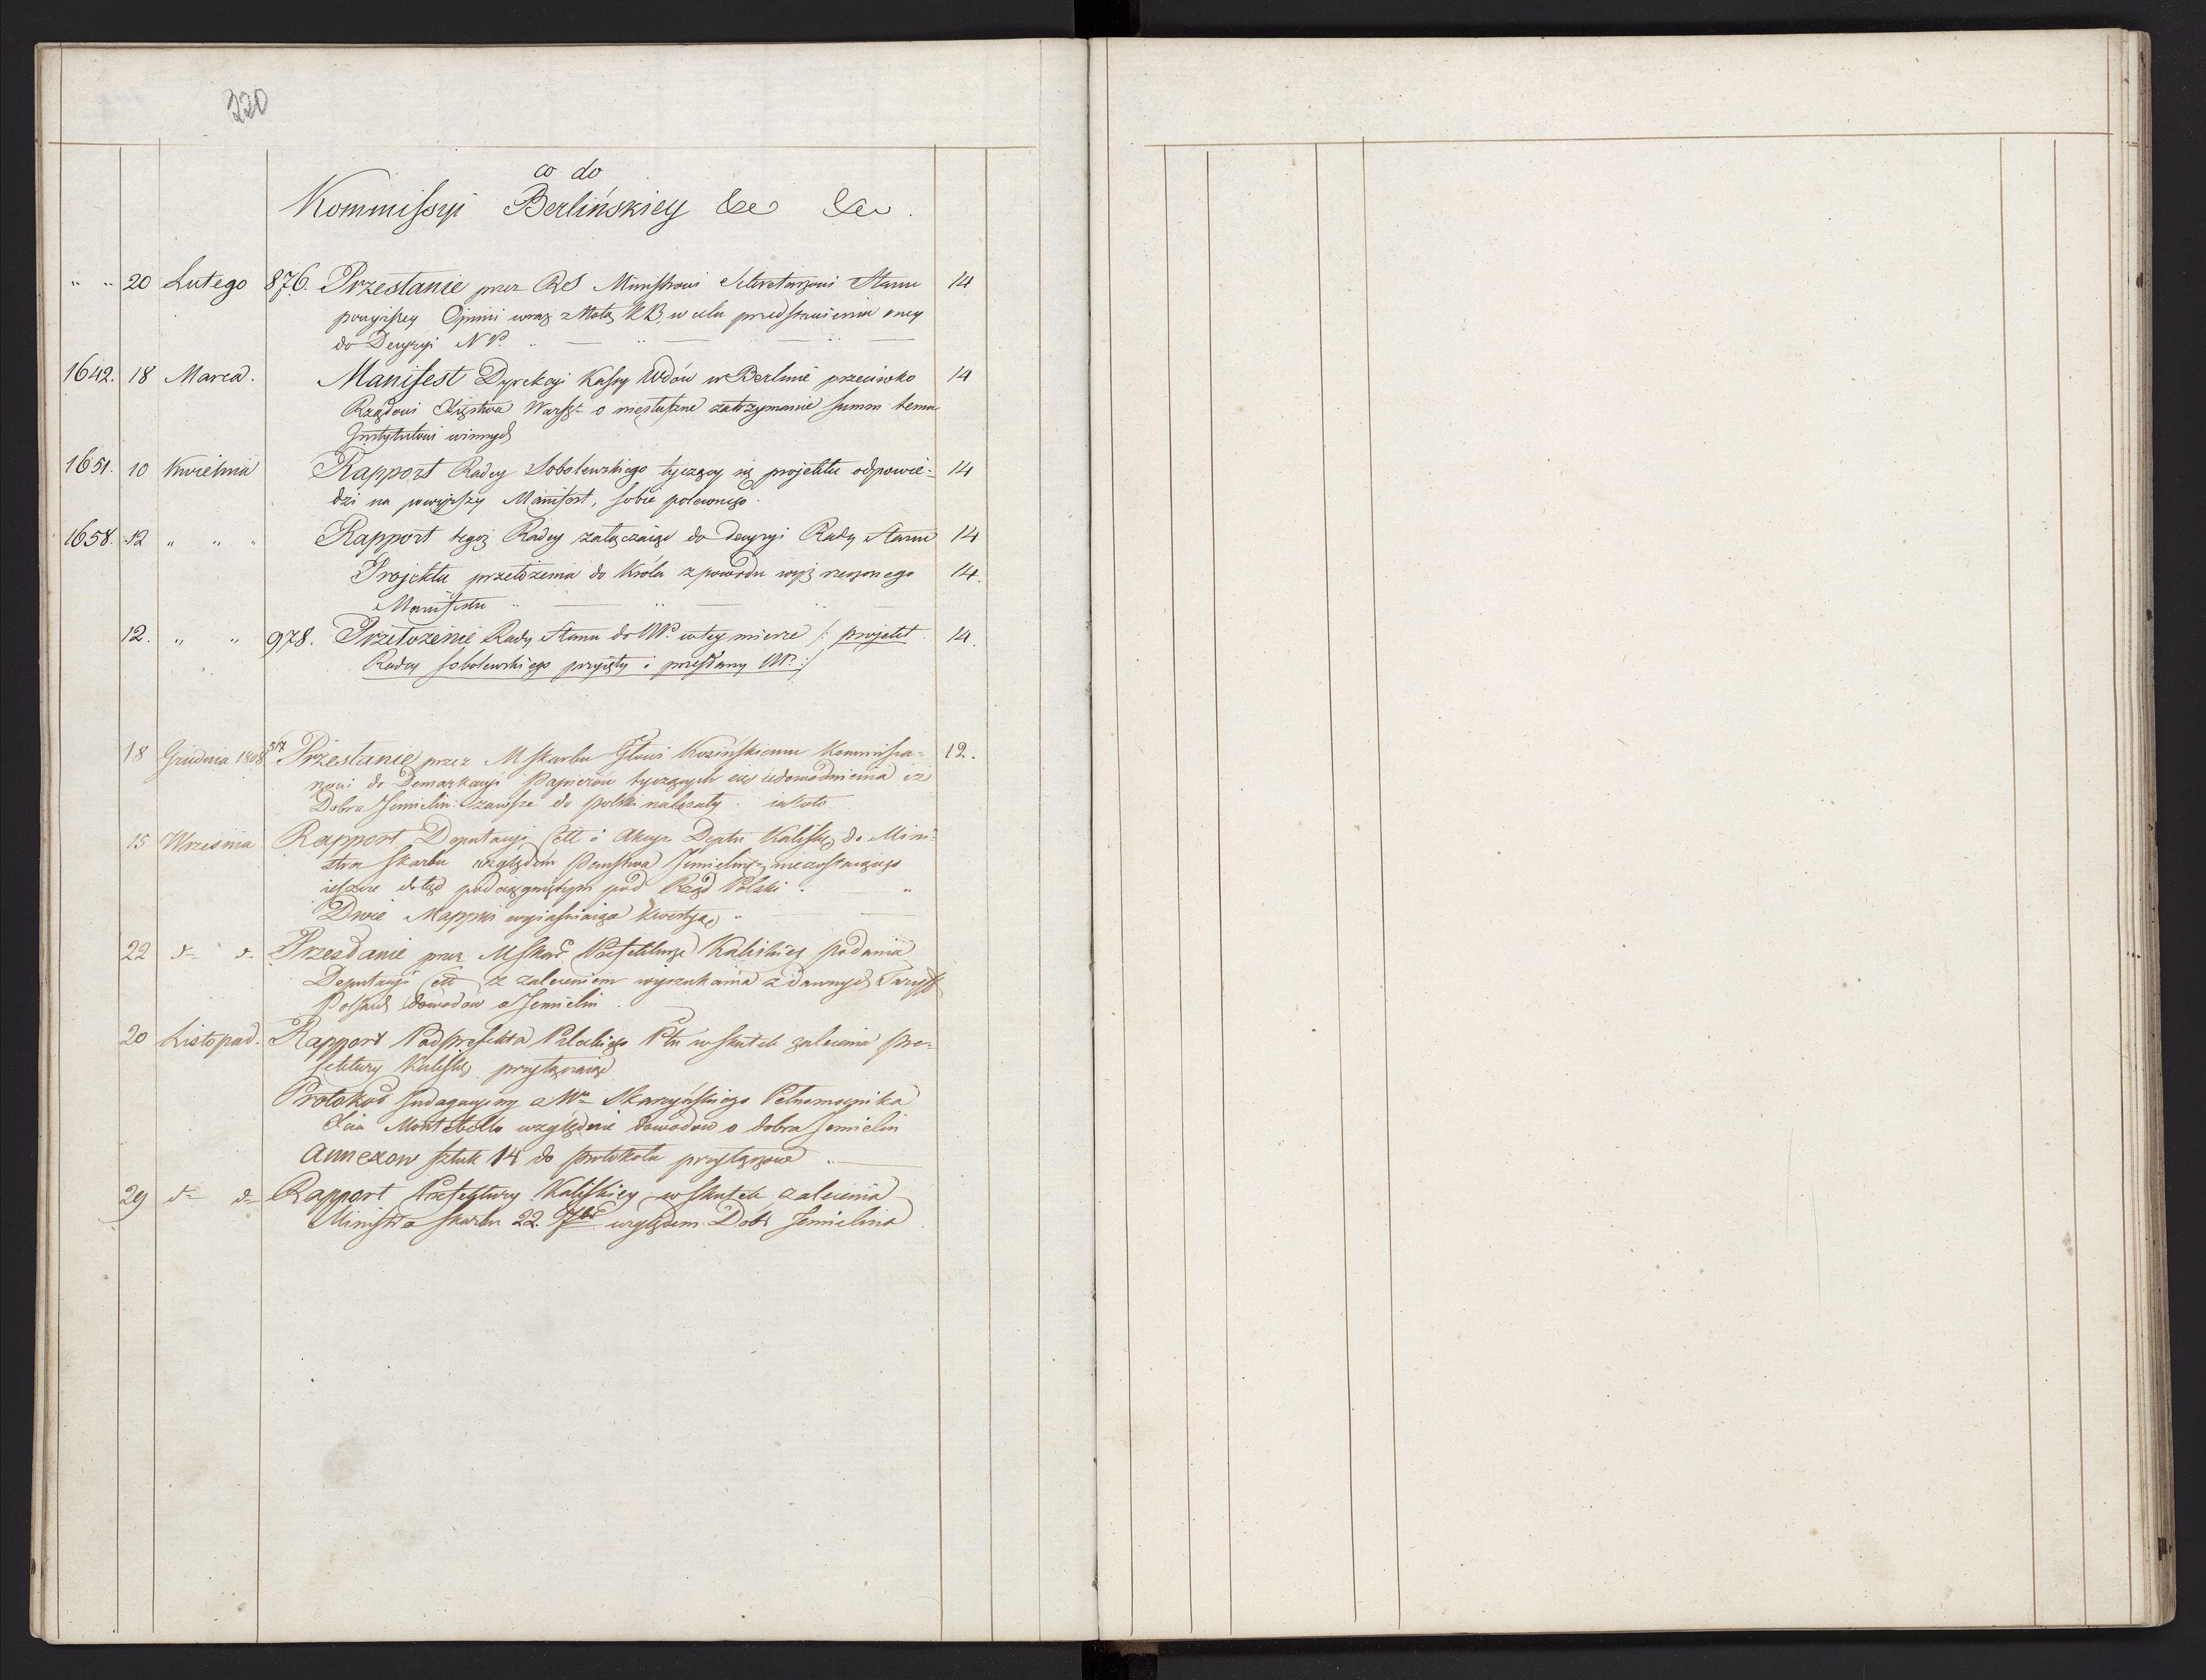 220
co do
Kommissyi Berlińskiey &c &c.
" " 20 Lutego 876. Przesłanie przez RS Ministrowi Sekretarzowi Stanu 14
powyższey Opinii wraz z Notą KB, w celu przedstawienia oney
do Decyzyi NP. " — " — " —
1642. 18 Marca. Manifest Dyrekcyi Kassy Wdów w Berlinie przeciwko 14
Rządowi Xięstwa Warsz: o niesłuszne zatrzymanie summ temu
Instytutowi winnych
1651. 10 Kwietnia Rapport Radcy Sobolewskiego tyczący się projektu odpowie- 14
dzi na powyższy Manifest, sobie poleconego.
1658. 12 " " " Rapport tegoż Radcy załączaiąc do decyzyi Rady Stanu 14
Projektu przełożenia do Króla z powodu wyż rzeczonego 14.
Manifestu " — " — " —
12. " " 978. Przełożenie Rady Stanu do NP. w tey mierze /: projekt 14.
Radcy Sobolewskiego przyięty i przesłany NP. :/
18 Grudnia 1808 517 Przesłanie przez M Skarbu Kosińskiemu Kommissa- 12.
rzowi do Demarkacyi Papierów tyczących się udowodnienia iż
Dobra Jemielin zawsze do polski należały. iakoto
15 Września Rapport Deputacyi Cell i Akcyz Deptu Kalisk: do Mini-
stra Skarbu względem Państwa Jemielin niezostaiącego
ieszcze dotąd podciągniętym pod Rząd Polski. — "
Dwie Mappki wyiaśniaiące kwestyą "
22 d- d- Przesłanie przez M Skar: Prefekturze Kaliskiey podania
Deputacyi Cell z zaleceniem wyszukania z dawnych Taryff
Polskich dowodów o Jemielin.
20 Listopad. Rapport Podprefekta Ptu w skutek zalecenia Pre-
fektury Kalisk: przyłączaiąc
Protokuł Indagacyiny a Wo Skarzyńskiego Pełnomocnika
Xcia Montebello względnie dowodow o dobra Jemielin
Annexow sztuk 14 do protokołu przyłączone " —
29 d- d- Rapport Prefektury Kaliskiey w skutek zalecenia
Ministra Skarbu 22. 7bra względem Dobr Jemielina